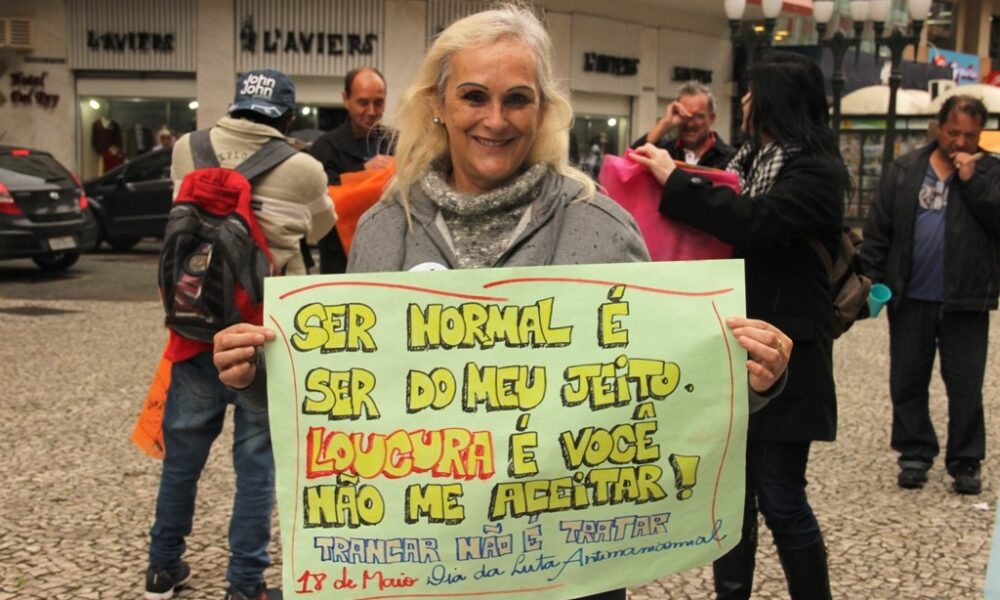 L'AVIERS
L'AVIERS
L'AVIERS
Hotel
Del Rey
John
John
SER NORMAL É
SER DO MEU JEITO.
LOUCURA É VOCÊ
NÃO ME ACEITAR!
TRANCAR NÃO É TRATAR
18 de Maio Dia da Luta Antimanicomial